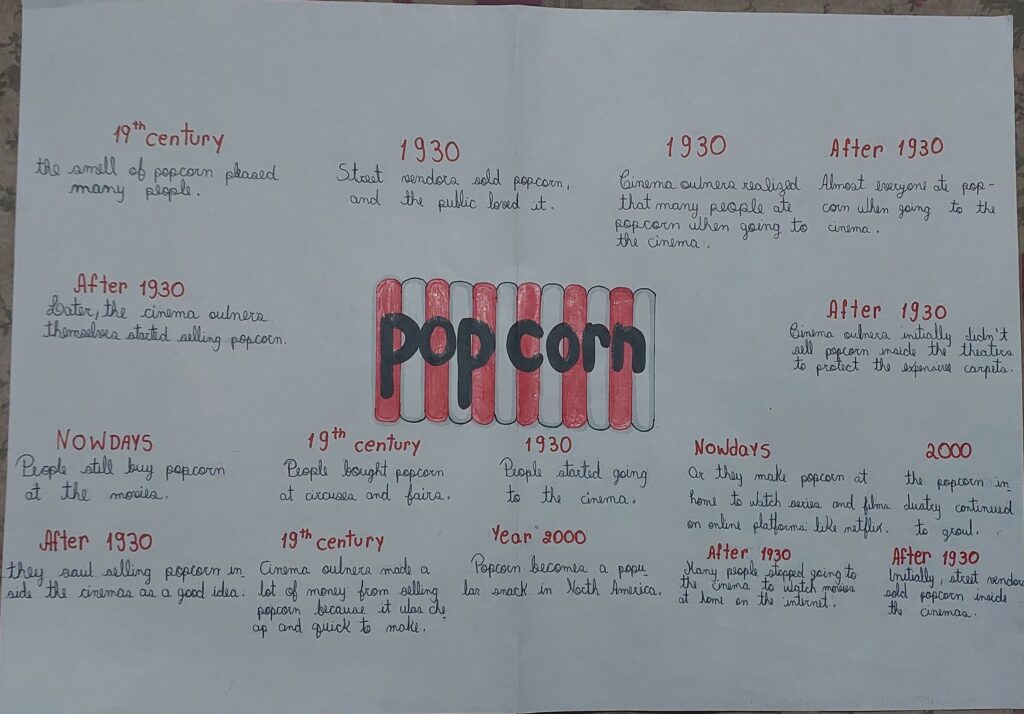 19th century
the smell of popcorn pleased
many people.
1930
Street vendors sold popcorn,
and the public loved it.
1930
Cinema oulners realized
that many people ate
popcorn when going to
the cinema.
After 1930
Almost everyone ate pop-
corn when going to the
cinema.
After 1930
Later, the cinema oulners
themselves started selling popcorn.
popcorn
After 1930
Cinema oulners initially didn't
sell popcorn inside the theaters
to protect the expensive carpets.
NOWDAYS
People still buy popcorn
at the movies.
19th century
People bought popcorn
at circuses and fairs.
1930
People started going
to the cinema.
Nowdays
Or they make popcorn at
home to watch series and films
on online platforms like netflix.
2000
the popcorn in_
dustry continued
to grow.
After 1930
they saw selling popcorn in_
side the cinemas as a good idea.
19th century
Cinema oulners made a
lot of money from selling
popcorn because it was che_
ap and quick to make.
Year 2000
Popcorn becomes a popu_
lar snack in North America.
After 1930
Many people stopped going to
the cinema to watch movies
at home on the internet.
After 1930
Initially, street vendors
sold popcorn inside
the cinemas.